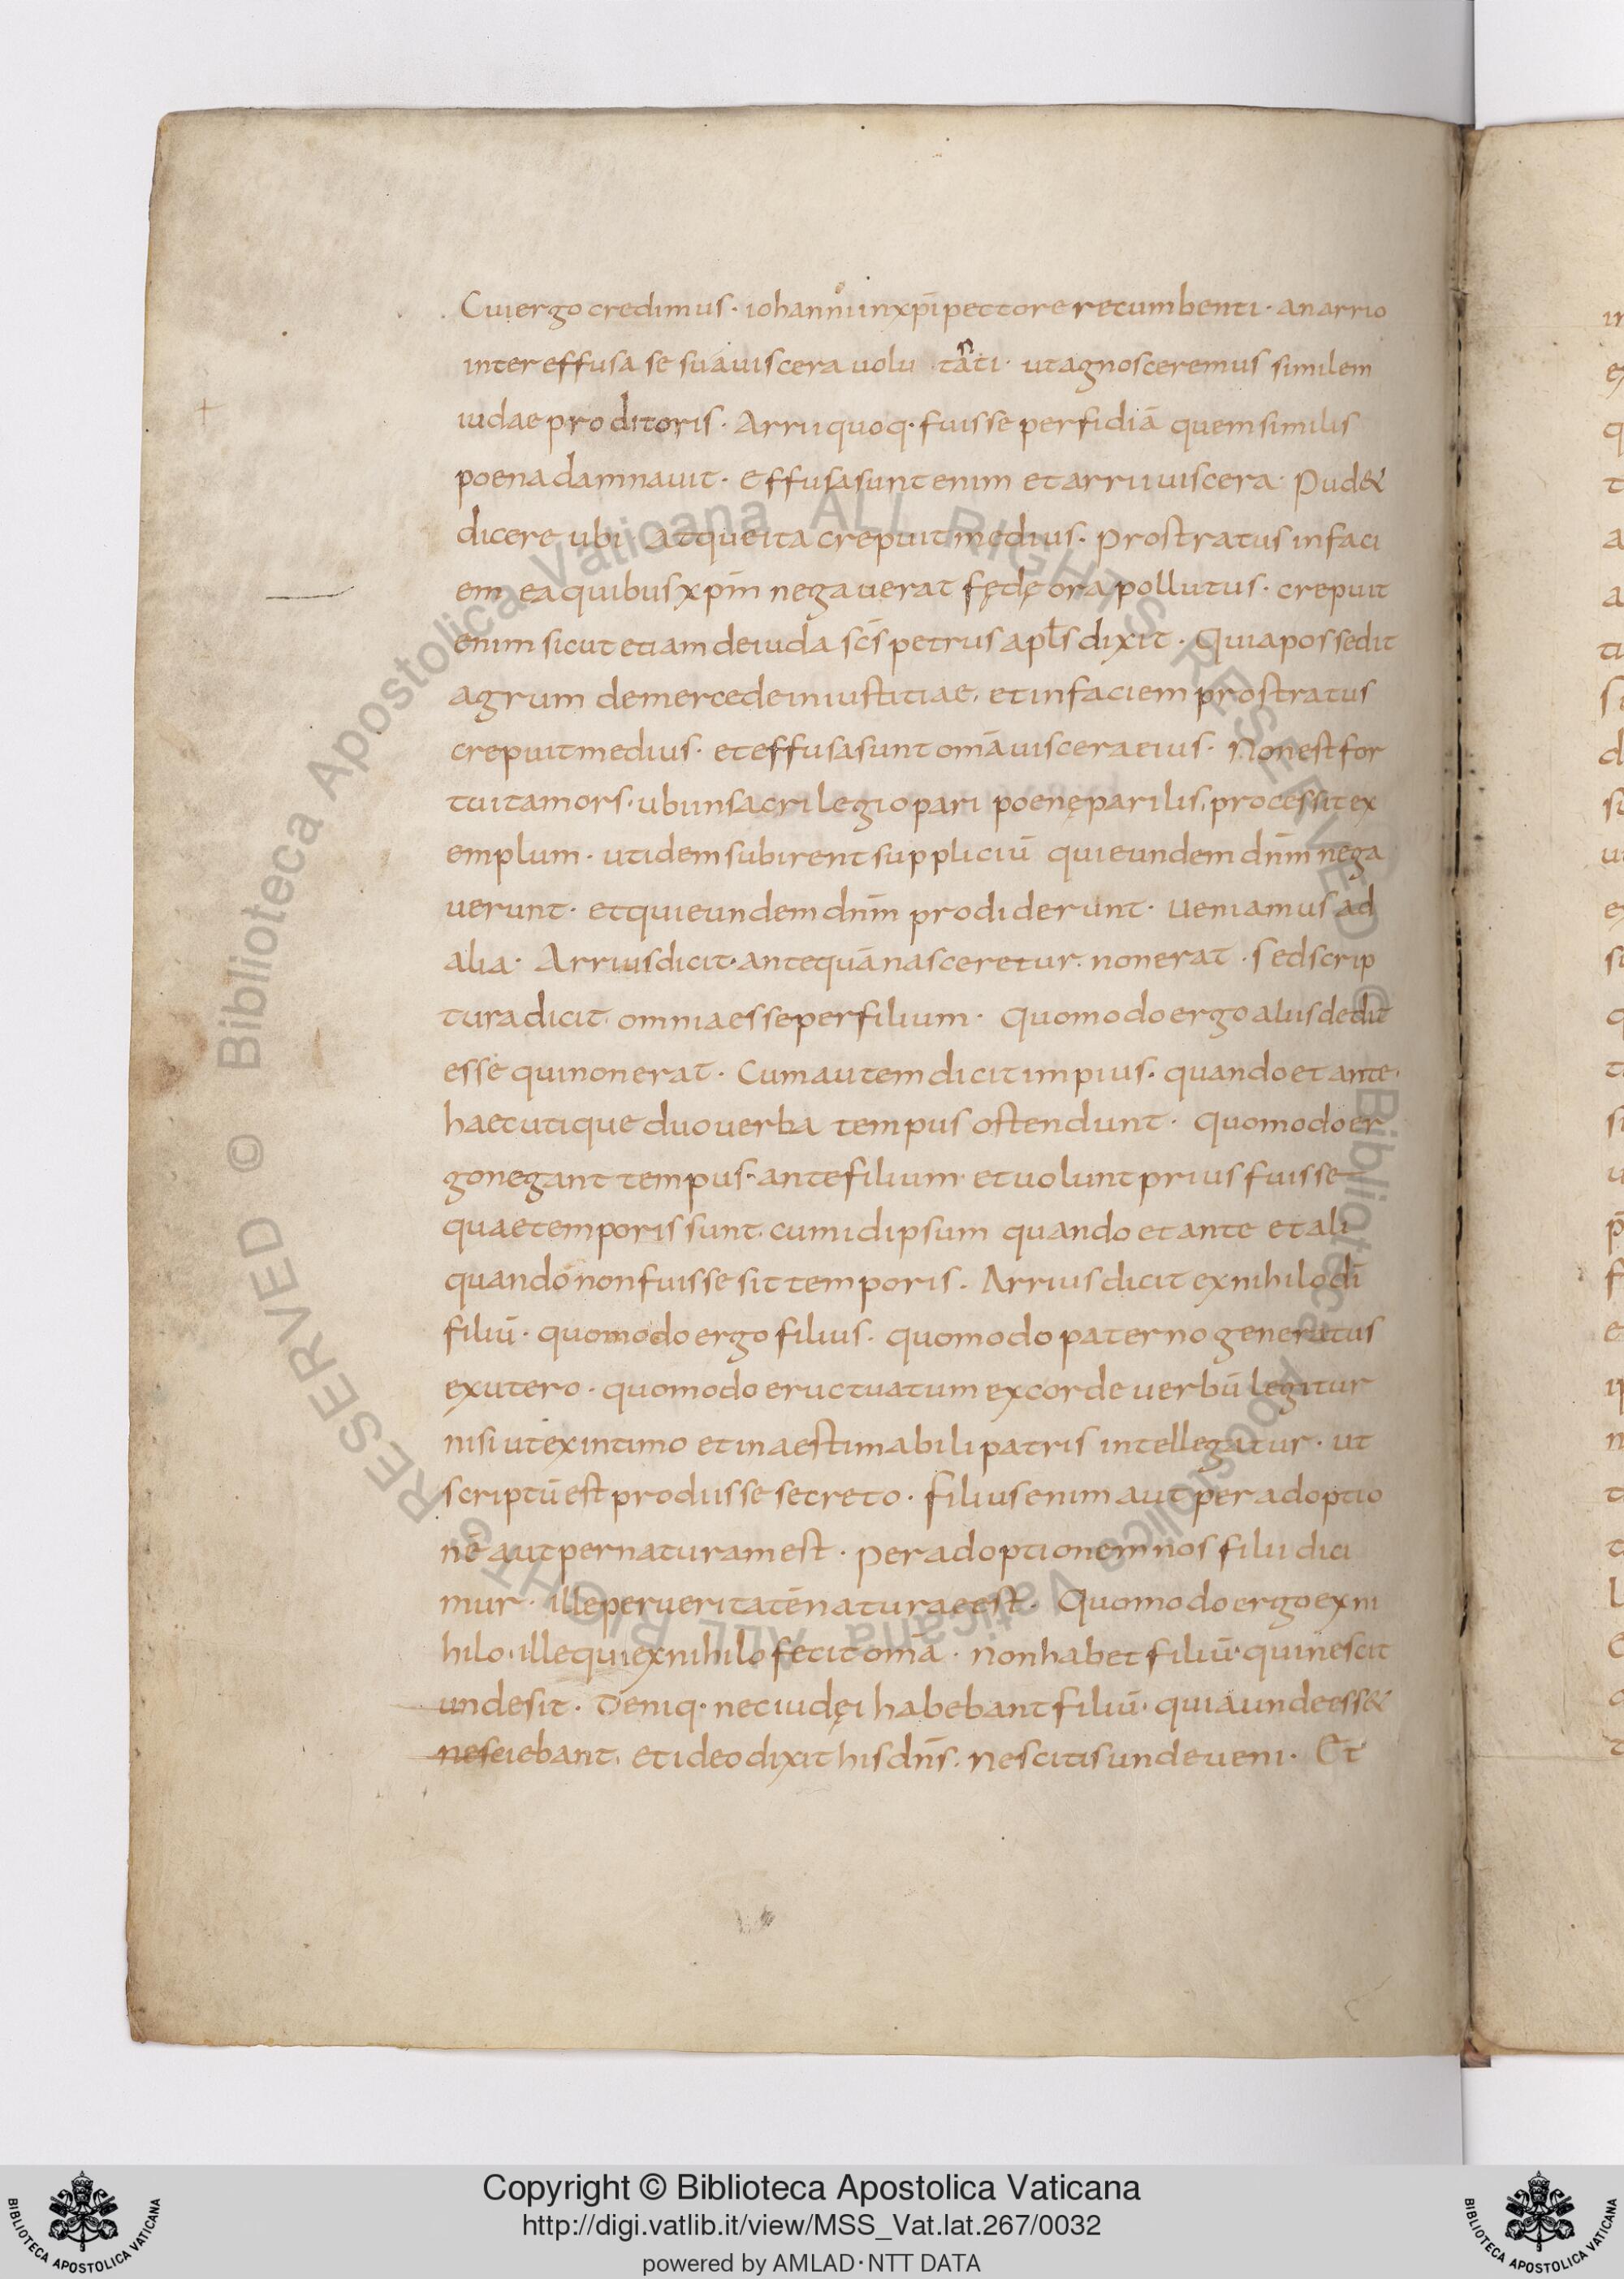 Cui ergo credimus · iohanni in xp̄i pectore recumbenti · an arrio
inter effusa se sua uiscera uolutanti · ut agnosceremus similem
iudae proditoris · Arrii quoq· fuisse perfidiā quem similis
poena damnauit · effusa sunt enim et arrii uiscera · Pud&
dicere ubi · atque ita crepuit medius · prostratus in faci
em ea quibus xp̄m negauerat fędę ora pollutus · crepuit
enim sicut etiam de iuda scs̄ petrus apłs dixit · Quia possedit
agrum de mercede iniustitiae, et in faciem prostratus
crepuit medius · et effusa sunt omā uiscera eius · Non est for
tuita mors · ubi in sacrilegio pari poenę parilis, processit ex
emplum · ut idem subirent suppliciū qui eundem dnm̄ nega
uerunt · et qui eundem dnm̄ prodiderunt · Ueniamus ad
alia · Arrius dicit · antequā nasceretur · non erat · sed scrip
tura dicit · omnia esse per filium · Quomodo ergo aliis dedit
esse qui non erat · Cum autem dicit impius · quando et ante ·
haec utique duo uerba tempus ostendunt · Quomodo er
go negant tempus · ante filium · et uolunt prius fuisse
quae temporis sunt · cum id ipsum quando et ante et ali
quando non fuisse sit temporis · Arrius dicit ex nihilo dī
filiū · quomodo ergo filius · quomodo paterno generatus
ex utero · quomodo eructuatum ex corde uerbū legitur
nisi ut ex intimo et inaestimabili patris intellegatur · ut
scriptū est prodiisse secreto · filius enim aut per adoptio
nē aut per naturam est · per adoptionem nos filii dici
mur · ille per ueritatē naturae est · Quomodo ergo ex ni
hilo · ille qui ex nihilo fecit omā · non habet filiū · qui nescit
unde sit · Deniq· nec iudęi habebant filiū · quia unde ess&
nesciebant · et ideo dixit his dns̄ · nescitis unde ueni · Et
Copyright © Biblioteca Apostolica Vaticana
http://digi.vatlib.it/view/MSS_Vat.lat.267/0032
powered by AMLAD·NTT DATA
BIBLIOTECA APOSTOLICA VATICANA
BIBLIOTECA APOSTOLICA VATICANA
© Biblioteca Apostolica Vaticana ALL RIGHTS RESERVED © Biblioteca Apostolica Vaticana ALL RIGHTS RESERVED